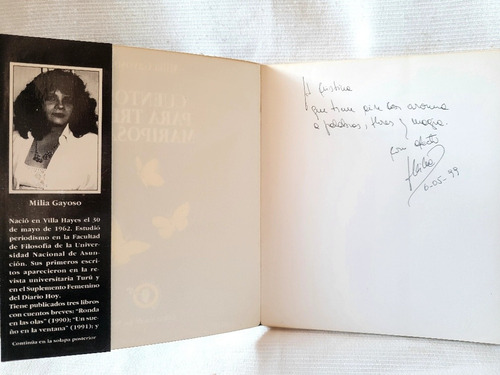 Milia Gayoso
Nació en Villa Hayes el 30
de mayo de 1962. Estudió
periodismo en la Facultad
de Filosofía de la Univer-
sidad Nacional de Asun-
ción. Sus primeros escri-
tos aparecieron en la re-
vista universitaria Turú y
en el Suplemento Femenino
del Diario Hoy.
Tiene publicados tres libros
con cuentos breves: "Ronda
en las olas" (1990); "Un sue-
ño en la ventana" (1991); y
Continúa en la solapa posterior
CUENTOS
PARA TRES
MARIPOSAS
A
que tiene que ver aroma
a palabras, flores y magia.
Con afecto
6-05-99